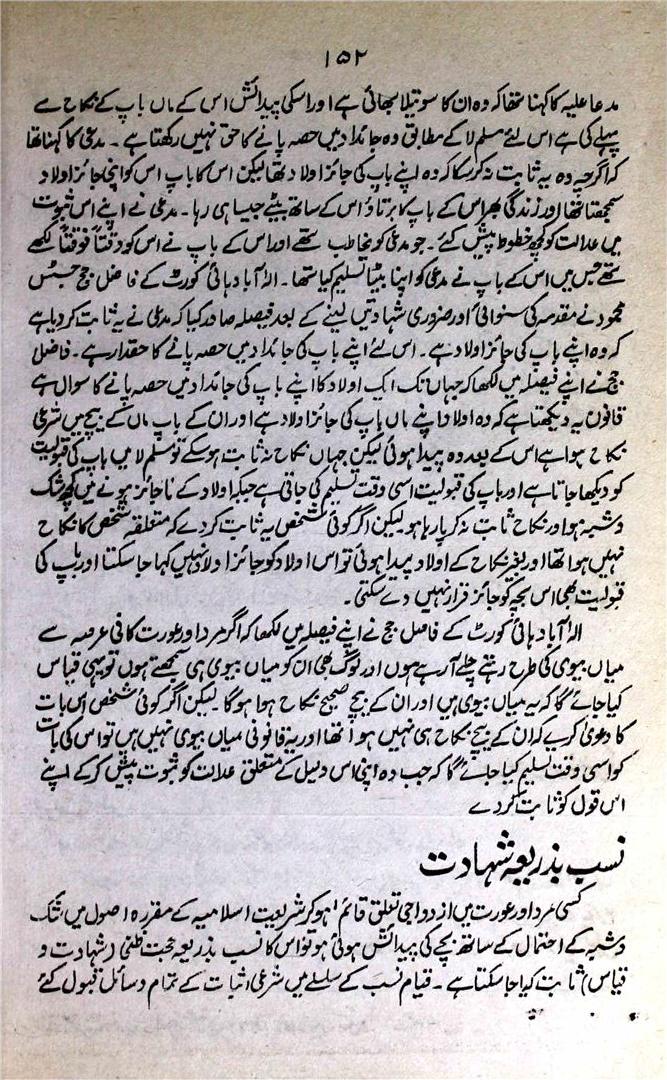 ۱۵۲
مدعا علیہ کا کہنا تھا کہ وہ ان کا سوتیلا بھائی ہے اور اسکی پیدائش اس کے ماں باپ کے نکاح سے
پہلے کی ہے اس لئے مسلم لا کے مطابق وہ جائداد میں حصہ پانے کا حق نہیں رکھتا ہے ۔ مدعی کا کہنا تھا
کہ اگرچہ وہ یہ ثابت نہ کر سکا کہ وہ اپنے باپ کی جائز اولاد تھا لیکن اس کا باپ اس کو اپنی جائز اولاد
سمجھتا تھا اور زندگی بھر اس کے باپ کا برتاؤ اس کے ساتھ بیٹے جیسا ہی رہا ۔ مدعی نے اپنے اس ثبوت
میں عدالت کو کچھ خطوط پیش کئے ۔ جو مدعی کو مخاطب تھے اور اس کے باپ نے اس کو وقتاً فوقتاً لکھے
تھے جس میں اس کے باپ نے مدعی کو اپنا بیٹا تسلیم کیا تھا ۔ الہٰ آباد ہائی کورٹ کے فاضل جج جسٹس
محمود نے مقدمہ کی سنوائی اور ضروری شہادتیں لینے کے بعد فیصلہ صادر کیا کہ مدعی نے یہ ثابت کر دیا ہے
کہ وہ اپنے باپ کی جائز اولاد ہے ۔ اس لئے اپنے باپ کی جائداد میں حصہ پانے کا حقدار ہے ۔ فاضل
جج نے اپنے فیصلہ میں لکھا کہ جہاں تک ایک اولاد کا اپنے باپ کی جائداد میں حصہ پانے کا سوال ہے
قانون یہ دیکھتا ہے کہ وہ اولاد اپنے ماں باپ کی جائز اولاد ہے اور ان کے باپ ماں کے بیچ میں شرعی
نکاح ہوا ہے اس کے بعد وہ پیدا ہوئی لیکن جہاں نکاح نہ ثابت ہو سکے تو مسلم لا میں باپ کی قبولیت
کو دیکھا جاتا ہے اور باپ کی قبولیت اسی وقت تسلیم کی جاتی ہے جبکہ اولاد کے ناجائز ہونے میں کچھ شک
و شبہ ہو اور نکاح ثابت نہ کر پا رہا ہو لیکن اگر کوئی شخص یہ ثابت کر دے کہ متعلقہ شخص کا نکاح
نہیں ہوا تھا اور بغیر نکاح کے اولاد پیدا ہوئی تو اس اولاد کو جائز اولاد نہیں کہا جا سکتا اور باپ کی
قبولیت بھی اس بچہ کو جائز قرار نہیں دے سکتی ۔
الہٰ آباد ہائی کورٹ کے فاضل جج نے اپنے فیصلہ میں لکھا کہ اگر مرد اور عورت کافی عرصہ سے
میاں بیوی کی طرح رہتے چلے آ رہے ہوں اور لوگ بھی ان کو میاں بیوی ہی سمجھتے ہوں تو یہی قیاس
کیا جائے گا کہ یہ میاں بیوی ہیں اور ان کے بیچ صحیح نکاح ہوا ہوگا لیکن اگر کوئی شخص اس بات
کا دعویٰ کرے کہ ان کے بیچ نکاح ہی نہیں ہوا تھا اور یہ قانونی میاں بیوی نہیں ہیں تو اس کی بات
کو اسی وقت تسلیم کیا جائے گا کہ جب وہ اپنی اس دلیل کے متعلق عدالت کو ثبوت پیش کر کے اپنے
اس قول کو ثابت کر دے
نسب بذریعہ شہادت
کسی مرد اور عورت میں ازدواجی تعلق قائم ہو کر شریعت اسلامیہ کے مقررہ اصول میں شک
و شبہ کے احتمال کے ساتھ بچے کی پیدائش ہوئی ہو تو اس کا نسب بذریعہ حجت ظنی (شہادت و
قیاس) ثابت کیا جا سکتا ہے ۔ قیام نسب کے سلسلے میں شرعی اثبات کے تمام وسائل قبول کئے